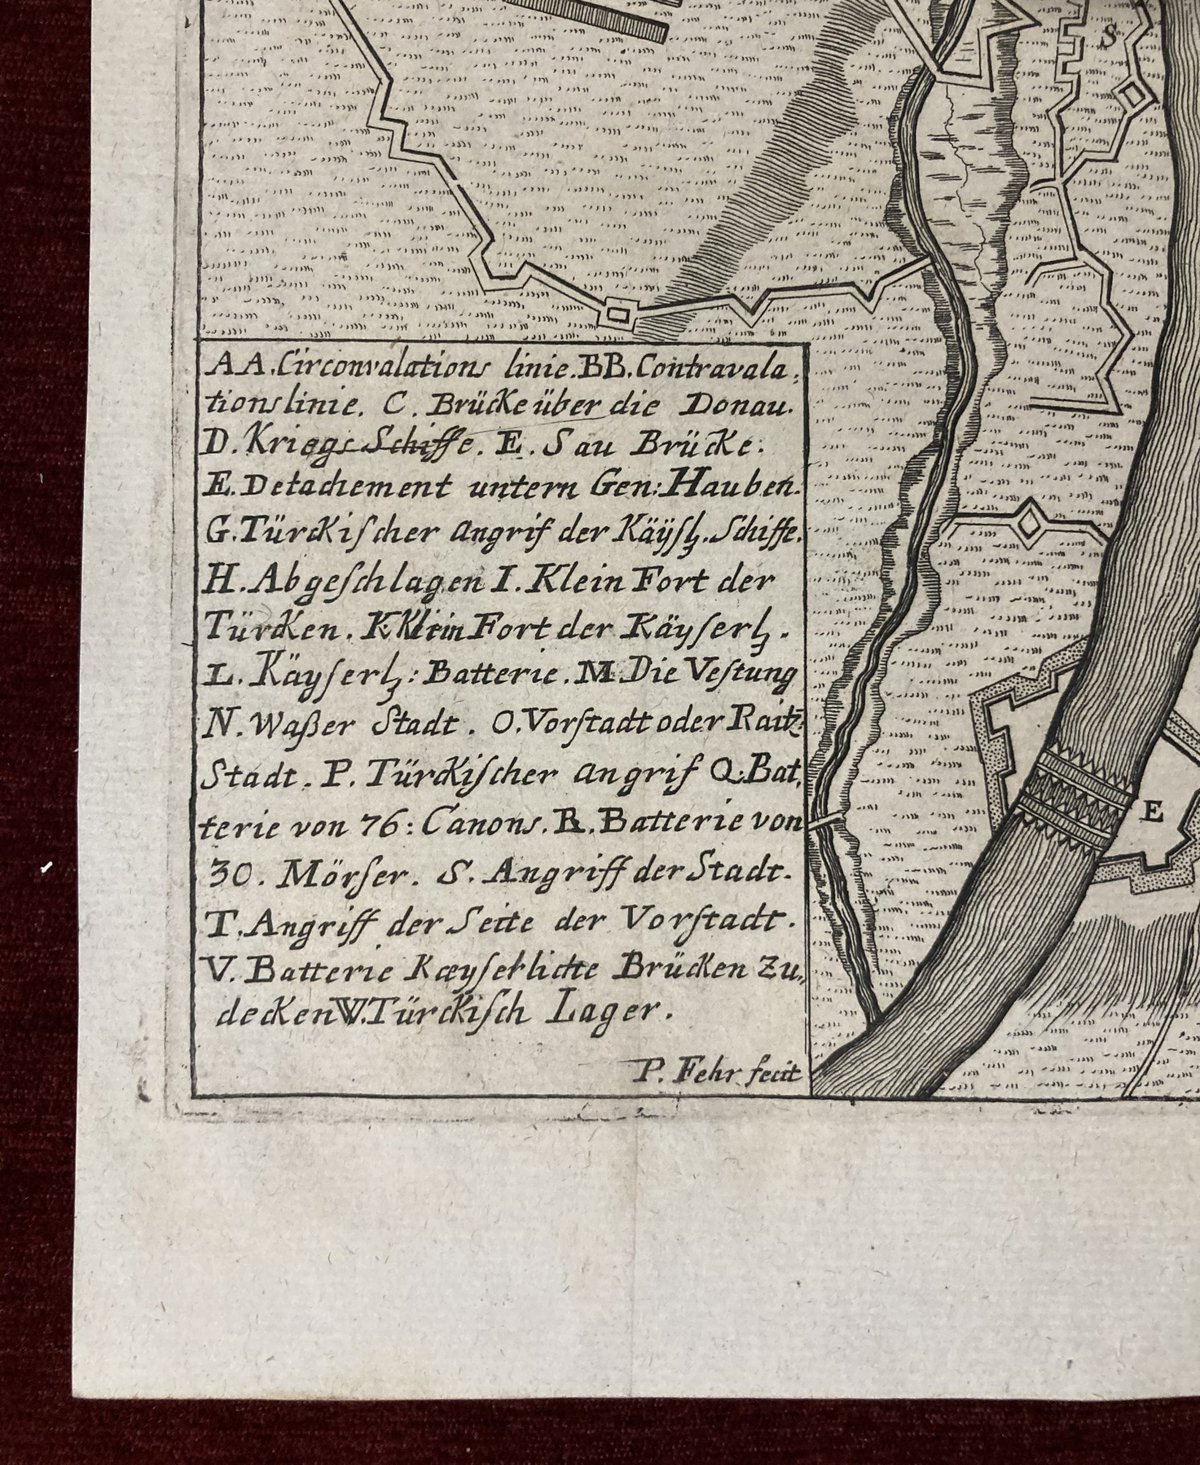 S
AA.Circonvalations linie.BB.Contravala-
tionslinie. C. Brücke über die Donau.
D. Kriegs Schiffe. E. Sau Brücke.
E. Detachement untern Gen: Hauben.
G. Türckiſcher angrif der Käyſl. Schiffe.
H. Abgeſchlagen I. Klein Fort der
Türcken. K. Klein Fort der Käyſerl.
L. Käyſerl: Batterie. M. Die Veſtung
N. Waßer Stadt. O. Vorſtadt oder Raitz-
Stadt. P. Türckiſcher angrif Q. Bat,
terie von 76: Canons. R. Batterie von
30. Mörſer. S. Angriff der Stadt.
T. Angriff der Seite der Vorſtadt.
V. Batterie Kæyſerlichte Brücken zu,
decken W. Türckiſch Lager.
P. Fehr fecit
E